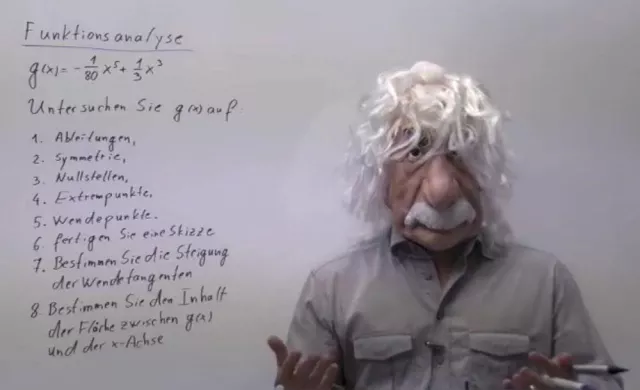 Funktionsanalyse
g(x) = - 1/80 x⁵ + 1/3 x³
Untersuchen Sie g(x) auf:
1. Ableitungen,
2. Symmetrie,
3. Nullstellen,
4. Extrempunkte,
5. Wendepunkte.
6. fertigen Sie eine Skizze
7. Bestimmen Sie die Steigung
der Wendetangenten
8. Bestimmen Sie den Inhalt
der Fläche zwischen g(x)
und der x-Achse